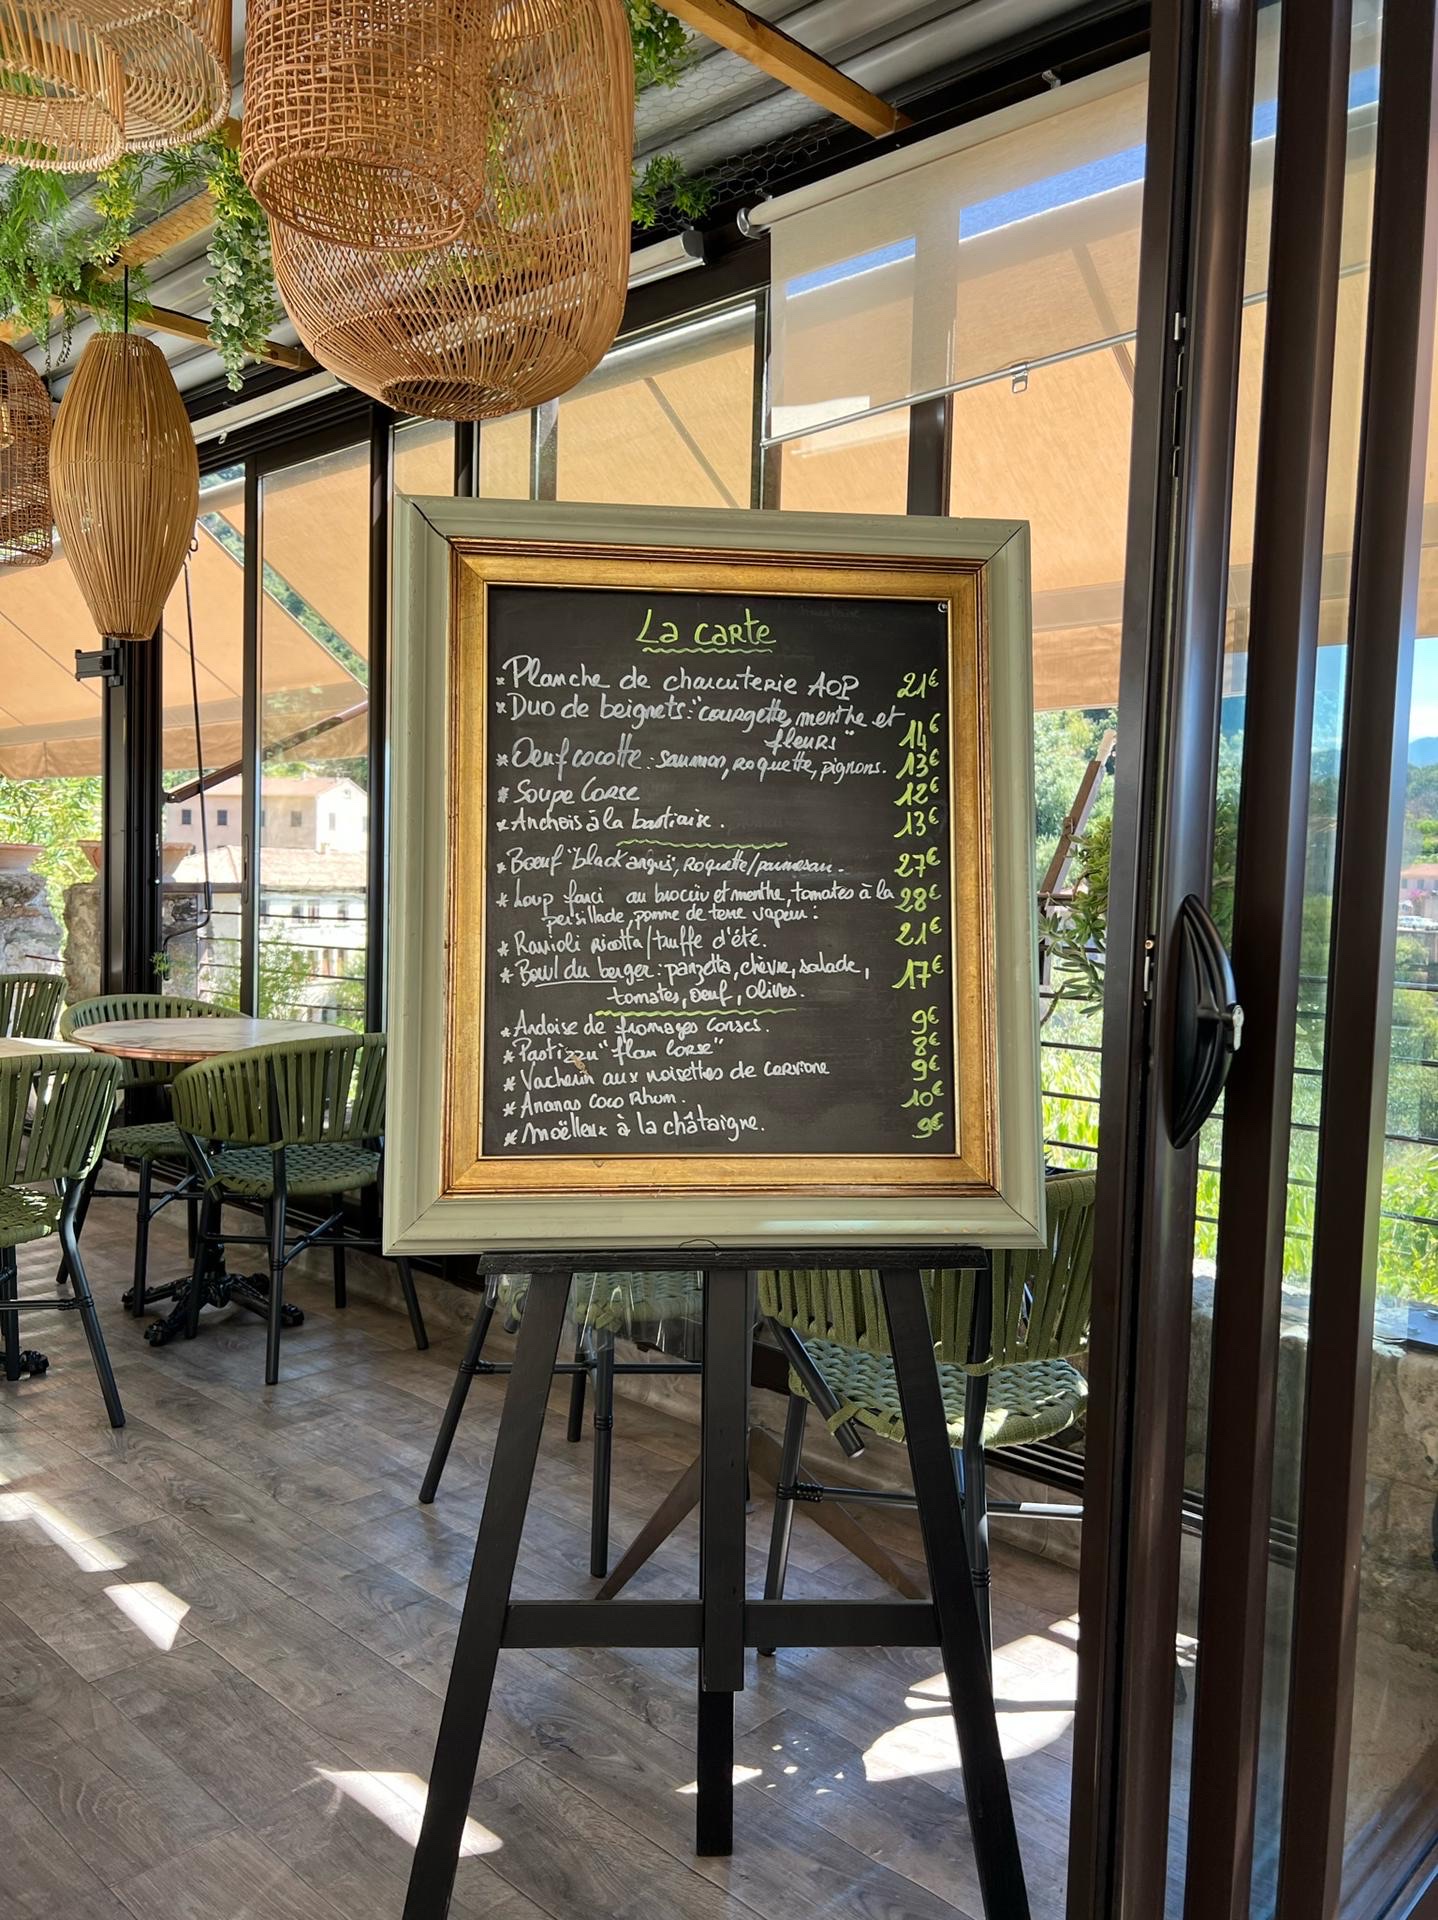 La carte
* Planche de charcuterie AOP 21€
* Duo de beignets: "courgette, menthe et
fleurs" 14€
* Oeuf cocotte: saumon, roquette, pignons. 13€
* Soupe Corse 12€
* Anchois à la bastiaise. 13€
* Bœuf "black angus", Roquette/parmesan. 27€
* Loup farci au brocciu et menthe, tomates à la 28€
persillade, pomme de terre vapeur:
* Ravioli ricotta/truffe d'été. 21€
* Bowl du berger: panzetta, chèvre, salade, 17€
tomates, oeuf, olives.
* Ardoise de fromages corses. 9€
* Pastizzu "flan Corse" 8€
* Vacherin aux noisettes de cervione 9€
* Ananas Coco Rhum. 10€
* Moëlleux à la châtaigne. 9€